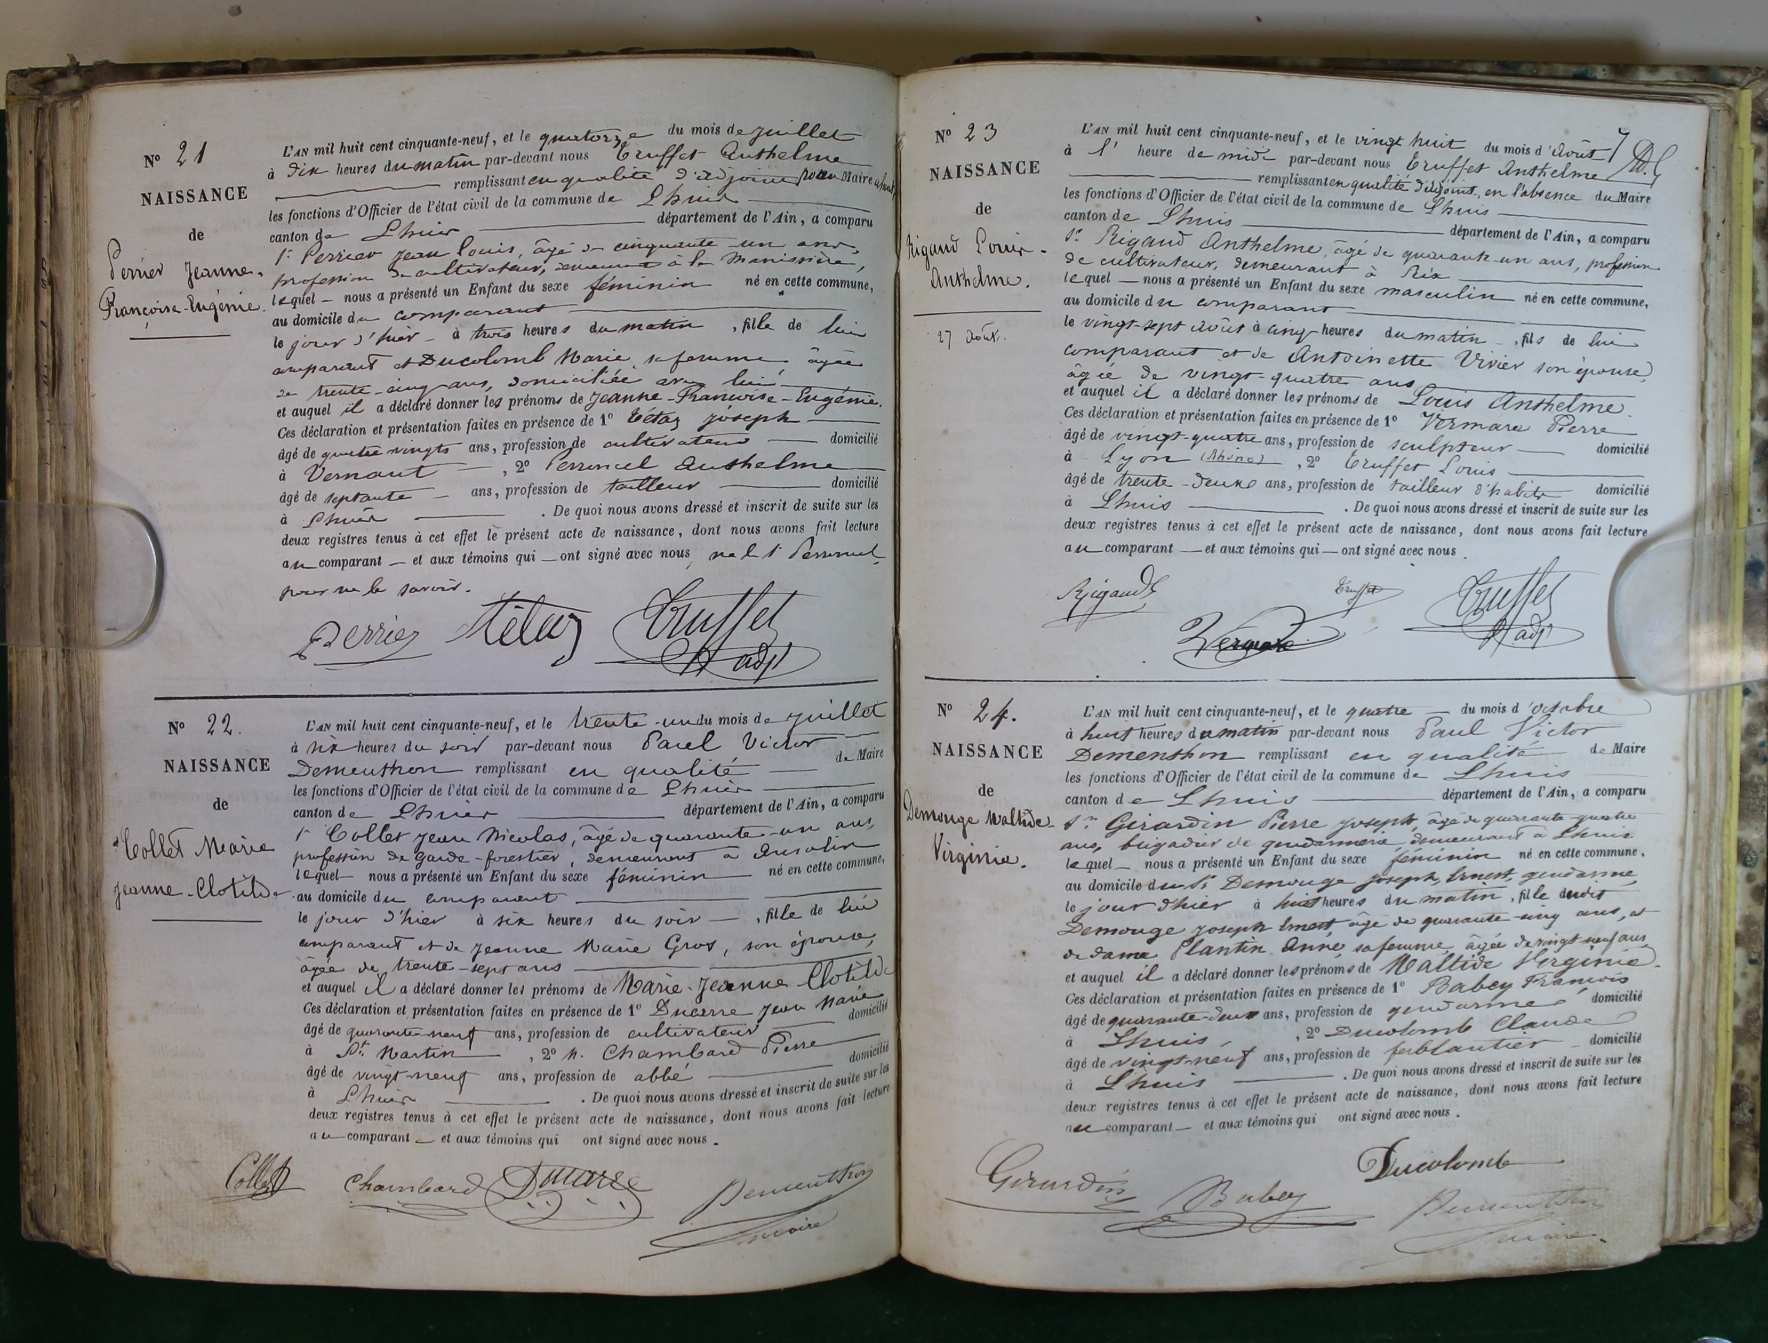 N° 21
NAISSANCE
de
Perrier Jeanne-
Françoise-Eugénie.
L'AN mil huit cent cinquante-neuf, et le quatorze du mois de juillet
à dix heures du matin par-devant nous Truffet Anthelme
remplissant en qualité d'adjoint Maire
les fonctions d'Officier de l'état civil de la commune de Lhuis
canton de Lhuis département de l'Ain, a comparu
Sr Perrier Jean Louis, âgé de cinquante-un ans,
profession de cultivateur, demeurant à la
lequel nous a présenté un Enfant du sexe féminin né en cette commune,
au domicile du comparant
le jour d'hier à trois heures du matin, fille de lui
comparant et Ducolomb Marie, sa femme âgée
de trente-cinq ans, domiciliée avec lui
et auquel il a déclaré donner les prénoms de Jeanne-Françoise-Eugénie.
Ces déclaration et présentation faites en présence de 1° Tétaz Joseph
âgé de quatre vingts ans, profession de cultivateur domicilié
à Vernaut, 2° Perrincel Anthelme
âgé de septante ans, profession de tailleur domicilié
à Lhuis. De quoi nous avons dressé et inscrit de suite sur les
deux registres tenus à cet effet le présent acte de naissance, dont nous avons fait lecture
au comparant et aux témoins qui ont signé avec nous, Perrincel
pour ne le savoir.
Perrier Tétaz Truffet
adjt
N° 22.
NAISSANCE
de
Collet Marie
Jeanne-Clotilde
L'AN mil huit cent cinquante-neuf, et le trente-un du mois de juillet
à six heures du soir par-devant nous Paul Victor
Dementhon remplissant en qualité de Maire
les fonctions d'Officier de l'état civil de la commune de Lhuis
canton de Lhuis département de l'Ain, a comparu
Sr Collet Jean Nicolas, âgé de quarante-un ans,
profession de garde-forestier, demeurant à
lequel nous a présenté un Enfant du sexe féminin né en cette commune,
au domicile du comparant
le jour d'hier à six heures du soir, fille de lui
comparant et de Jeanne Marie Gros, son épouse,
âgée de trente-sept ans
et auquel il a déclaré donner les prénoms de Marie-Jeanne Clotilde
Ces déclaration et présentation faites en présence de 1° Ducarre Jean Marie
âgé de quarante-neuf ans, profession de cultivateur domicilié
à St. Martin, 2° M. Chambard Pierre
âgé de vingt-neuf ans, profession de abbé domicilié
à Lhuis. De quoi nous avons dressé et inscrit de suite sur les
deux registres tenus à cet effet le présent acte de naissance, dont nous avons fait lecture
au comparant et aux témoins qui ont signé avec nous.
Collet Chambard Ducarre Dementhon
maire
N° 23
NAISSANCE
de
Rigaud Louis-
Anthelme.
27 août.
L'AN mil huit cent cinquante-neuf, et le vingt huit du mois d'août
à l'heure de midi par-devant nous Truffet Anthelme
remplissant en qualité d'adjoint, en l'absence du Maire
les fonctions d'Officier de l'état civil de la commune de Lhuis
canton de Lhuis département de l'Ain, a comparu
Sr Rigaud Anthelme, âgé de quarante un ans, profession
de cultivateur, demeurant à Rix
lequel nous a présenté un Enfant du sexe masculin né en cette commune,
au domicile du comparant
le vingt-sept août à cinq heures du matin, fils de lui
comparant et de Antoinette Vivier son épouse,
âgée de vingt-quatre ans
et auquel il a déclaré donner les prénoms de Louis Anthelme.
Ces déclaration et présentation faites en présence de 1° Vermare Pierre
âgé de vingt-quatre ans, profession de sculpteur domicilié
à Lyon (Rhône), 2° Truffet Louis
âgé de trente-deux ans, profession de tailleur d'habits domicilié
à Lhuis. De quoi nous avons dressé et inscrit de suite sur les
deux registres tenus à cet effet le présent acte de naissance, dont nous avons fait lecture
au comparant et aux témoins qui ont signé avec nous.
Rigaud Truffet Truffet
Vermare adjt
N° 24.
NAISSANCE
de
Demouge Maltide
Virginie.
L'AN mil huit cent cinquante-neuf, et le quatre du mois d'octobre
à huit heures du matin par-devant nous Paul Victor
Dementhon remplissant en qualité de Maire
les fonctions d'Officier de l'état civil de la commune de Lhuis
canton de Lhuis département de l'Ain, a comparu
Sr. Girardin Pierre Joseph, âgé de quarante-quatre
ans, brigadier de gendarmerie, demeurant à Lhuis
lequel nous a présenté un Enfant du sexe féminin né en cette commune,
au domicile du Sr Demouge Joseph, Ernest, gendarme,
le jour d'hier à huit heures du matin, fille dudit
Demouge Joseph Ernest âgé de quarante-cinq ans, et
de dame Plantin Anne, sa femme, âgée de vingt-neuf ans
et auquel il a déclaré donner les prénoms de Maltide Virginie.
Ces déclaration et présentation faites en présence de 1° Babey François
âgé de quarante-deux ans, profession de gendarme domicilié
à Lhuis, 2° Ducolomb Claude
âgé de vingt-neuf ans, profession de ferblantier domicilié
à Lhuis. De quoi nous avons dressé et inscrit de suite sur les
deux registres tenus à cet effet le présent acte de naissance, dont nous avons fait lecture
au comparant et aux témoins qui ont signé avec nous.
Ducolomb
Girardin Babey Dementhon
maire.